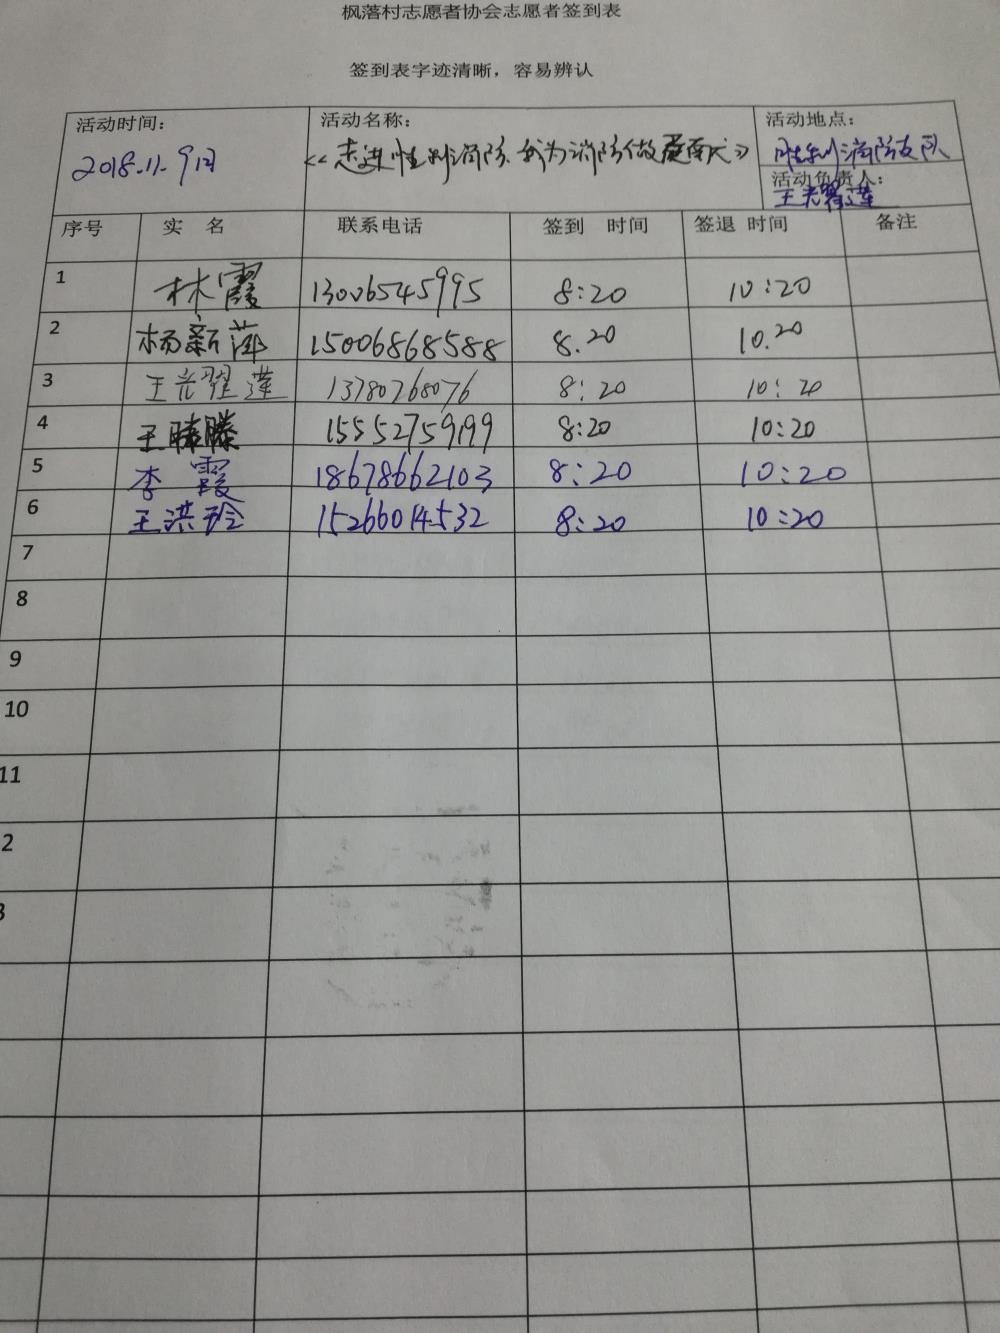 枫落村志愿者协会志愿者签到表
签到表字迹清晰，容易辨认
活动时间： 活动名称： 活动地点：
2018.11.9日 《走进胜利消防、我为消防做爱南瓜》 胜利消防支队
活动负责人：
王光翠莲
序号 实 名 联系电话 签到 时间 签退 时间 备注
1 林霞 13006545995 8:20 10:20
2 杨新萍 15006868588 8.20 10.20
3 王光翠莲 13780768076 8:20 10:20
4 王 15552759199 8:20 10:20
5 李霞 18678662103 8:20 10:20
6 王洪玲 15266014532 8:20 10:20
7
8
9
10
11
2
3